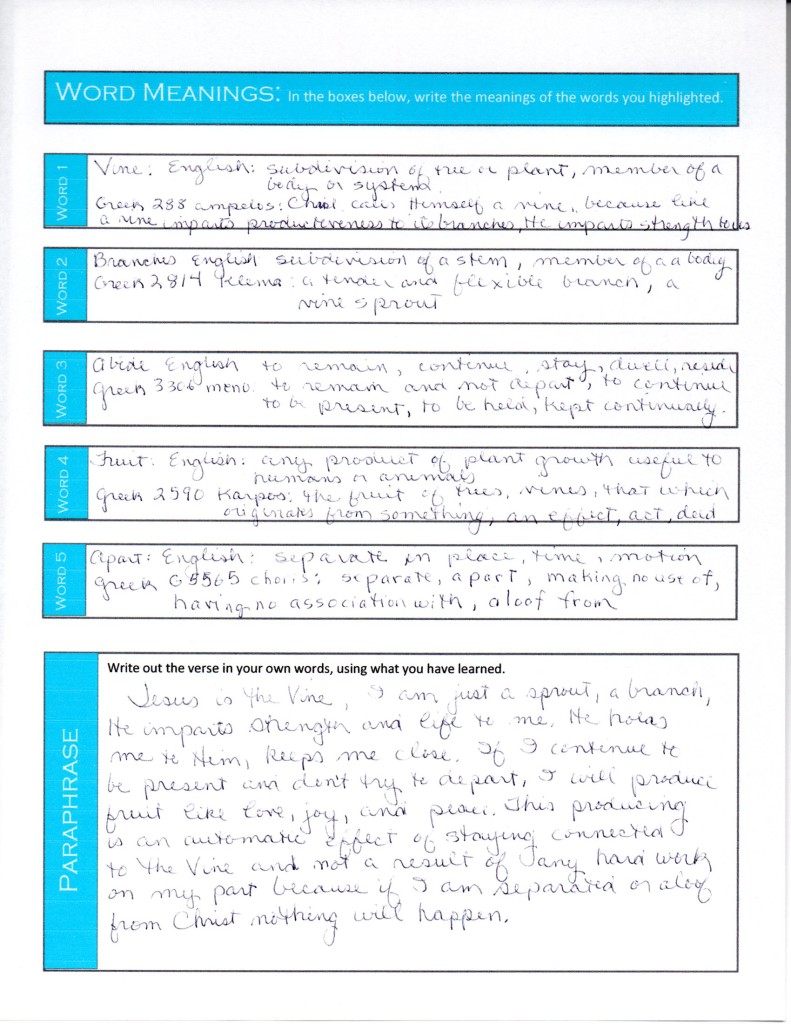 WORD MEANINGS: In the boxes below, write the meanings of the words you highlighted.
WORD 1
Vine: English: subdivision of tree or plant, member of a
body or system
Greek 288 ampelos: Christ calls Himself a vine, because like
a vine imparts productiveness to its branches, He imparts strength to us
WORD 2
Branches English subdivision of a stem, member of a a body
Greek 2814 klema: a tender and flexible branch, a
vine sprout
WORD 3
Abide English to remain, continue, stay, dwell, reside
Greek 3306 meno. to remain and not depart, to continue
to be present, to be held, kept continually.
WORD 4
Fruit: English: any product of plant growth useful to
humans or animals
Greek 2590 Karpos: the fruit of trees, vines, that which
originates from something, an effect, act, deed
WORD 5
Apart: English: separate in place, time, motion
Greek G5565 choris: separate, apart, making no use of,
having no association with, aloof from
PARAPHRASE
Write out the verse in your own words, using what you have learned.
Jesus is the Vine, I am just a sprout, a branch,
He imparts strength and life to me. He holds
me to Him, keeps me close. If I continue to
be present and don't try to depart, I will produce
fruit like love, joy, and peace. This producing
is an automatic effect of staying connected
to the Vine and not a result of any hard work
on my part because if I am separated or aloof
from Christ nothing will happen.